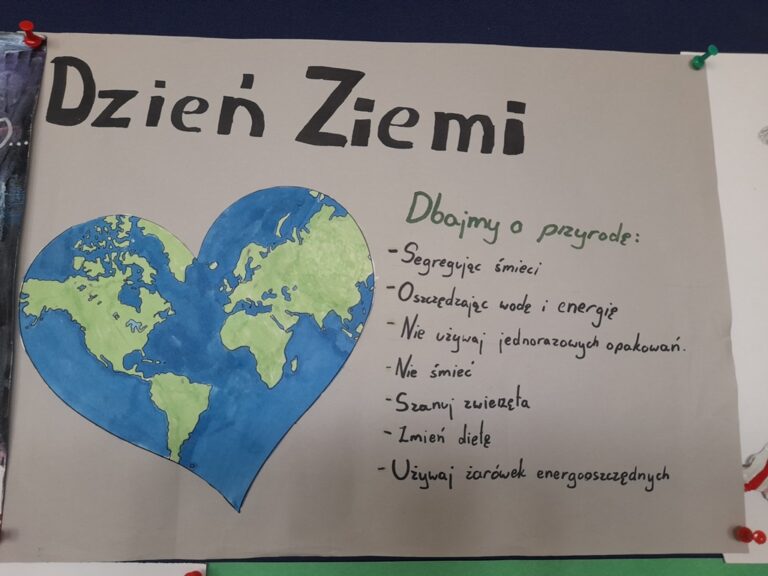 Dzień Ziemi
Dbajmy o przyrodę:
- Segregując śmieci
- Oszczędzając wodę i energię
- Nie używaj jednorazowych opakowań.
- Nie śmieć
- Szanuj zwierzęta
- Zmień dietę
- Używaj żarówek energooszczędnych